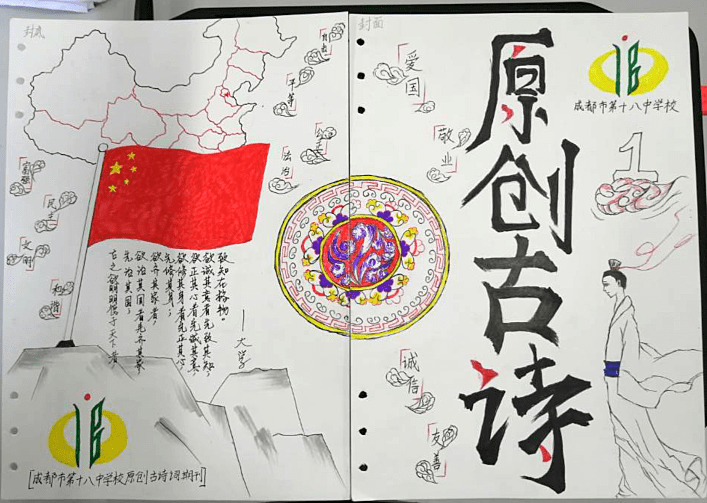 封底
自由
平等
公正
法治
富强
民主
文明
和谐
致知在格物。
欲诚其意者先致其知，
欲正其心者先诚其意，
欲修其身者先正其心
先修其身；
欲齐其家者，
欲治其国者先齐其家
先治其国；
古之欲明明德于天下者
——大学
[成都市第十八中学校原创古诗词期刊]
封面
爱国
敬业
诚信
友善
原创古诗
成都市第十八中学校
1